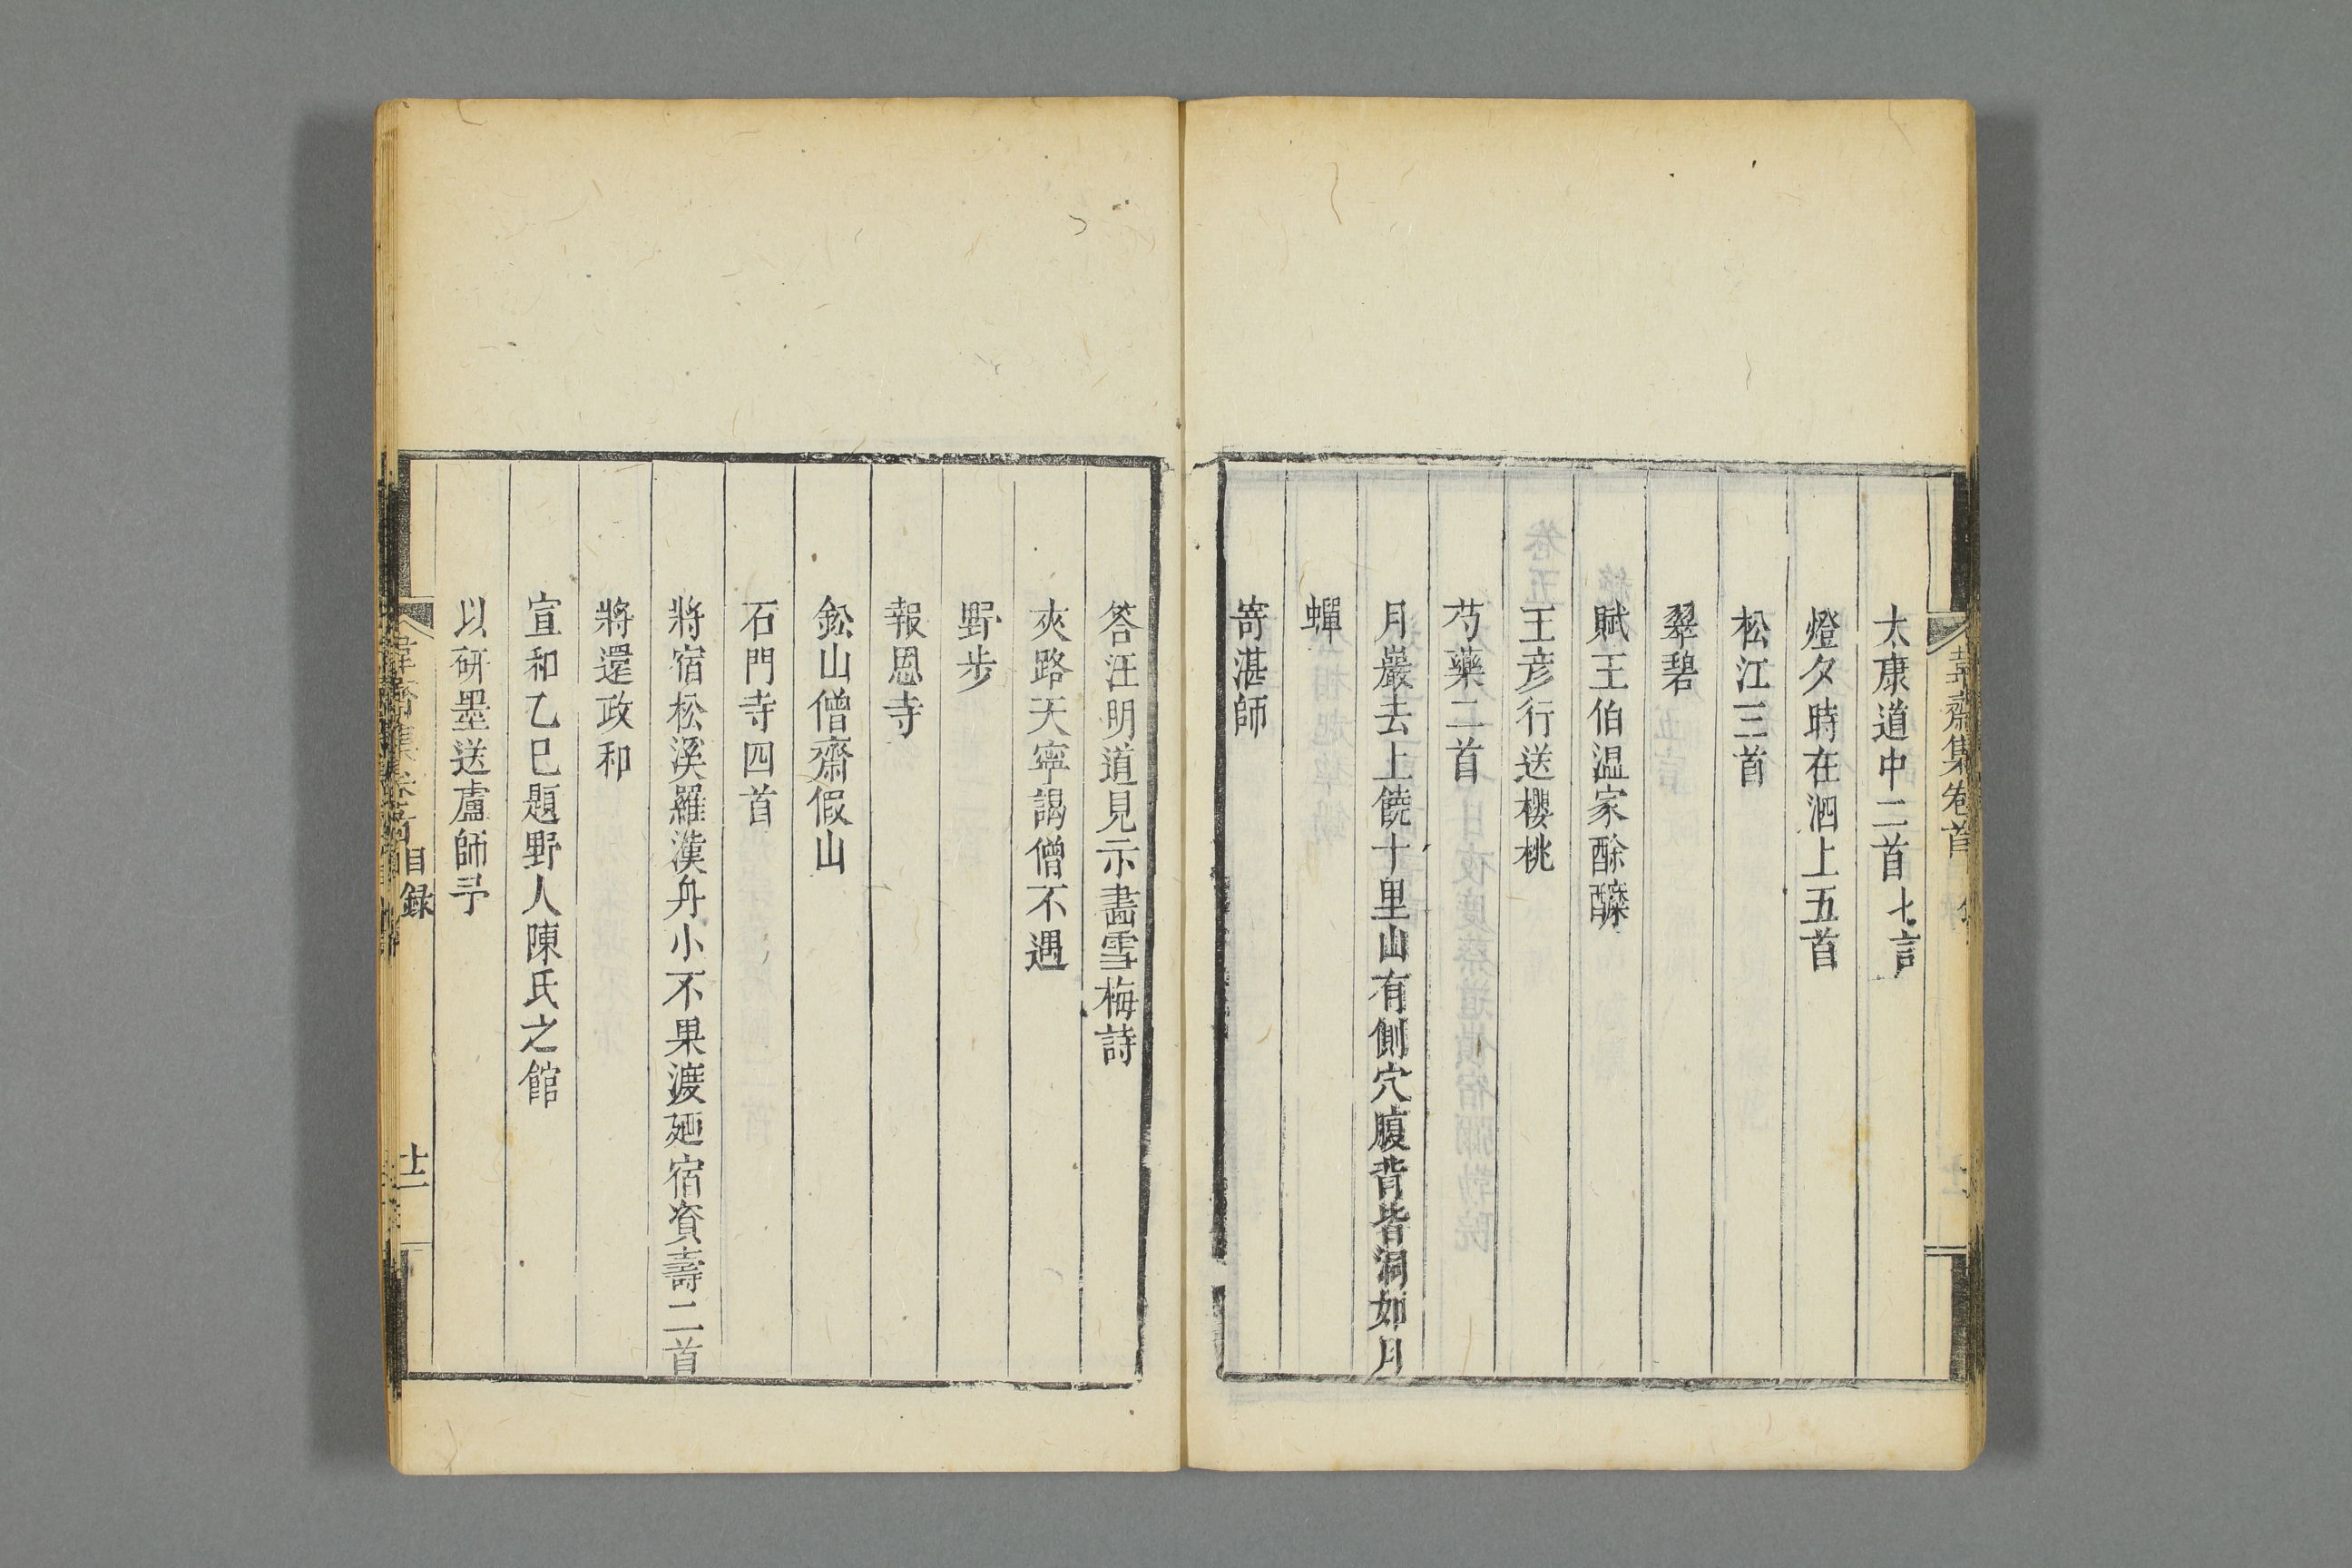 韋齋集卷首
太康道中二首七言
燈夕時在泗上五首
松江三首
翠碧
賦王伯温家酴醾
王彦行送櫻桃
芍藥二首
月巖去上饒十里山有側穴腹背皆洞如月
蟬
寄湛師
答汪明道見示畵雪梅詩
夾路天寧謁僧不遇
野步
報恩寺
鈆山僧齋假山
石門寺四首
將宿松溪羅漢舟小不果渡廼宿資壽二首
將還政和
宣和乙巳題野人陳氏之館
以研墨送盧師予
韋齋集卷首目録
十二